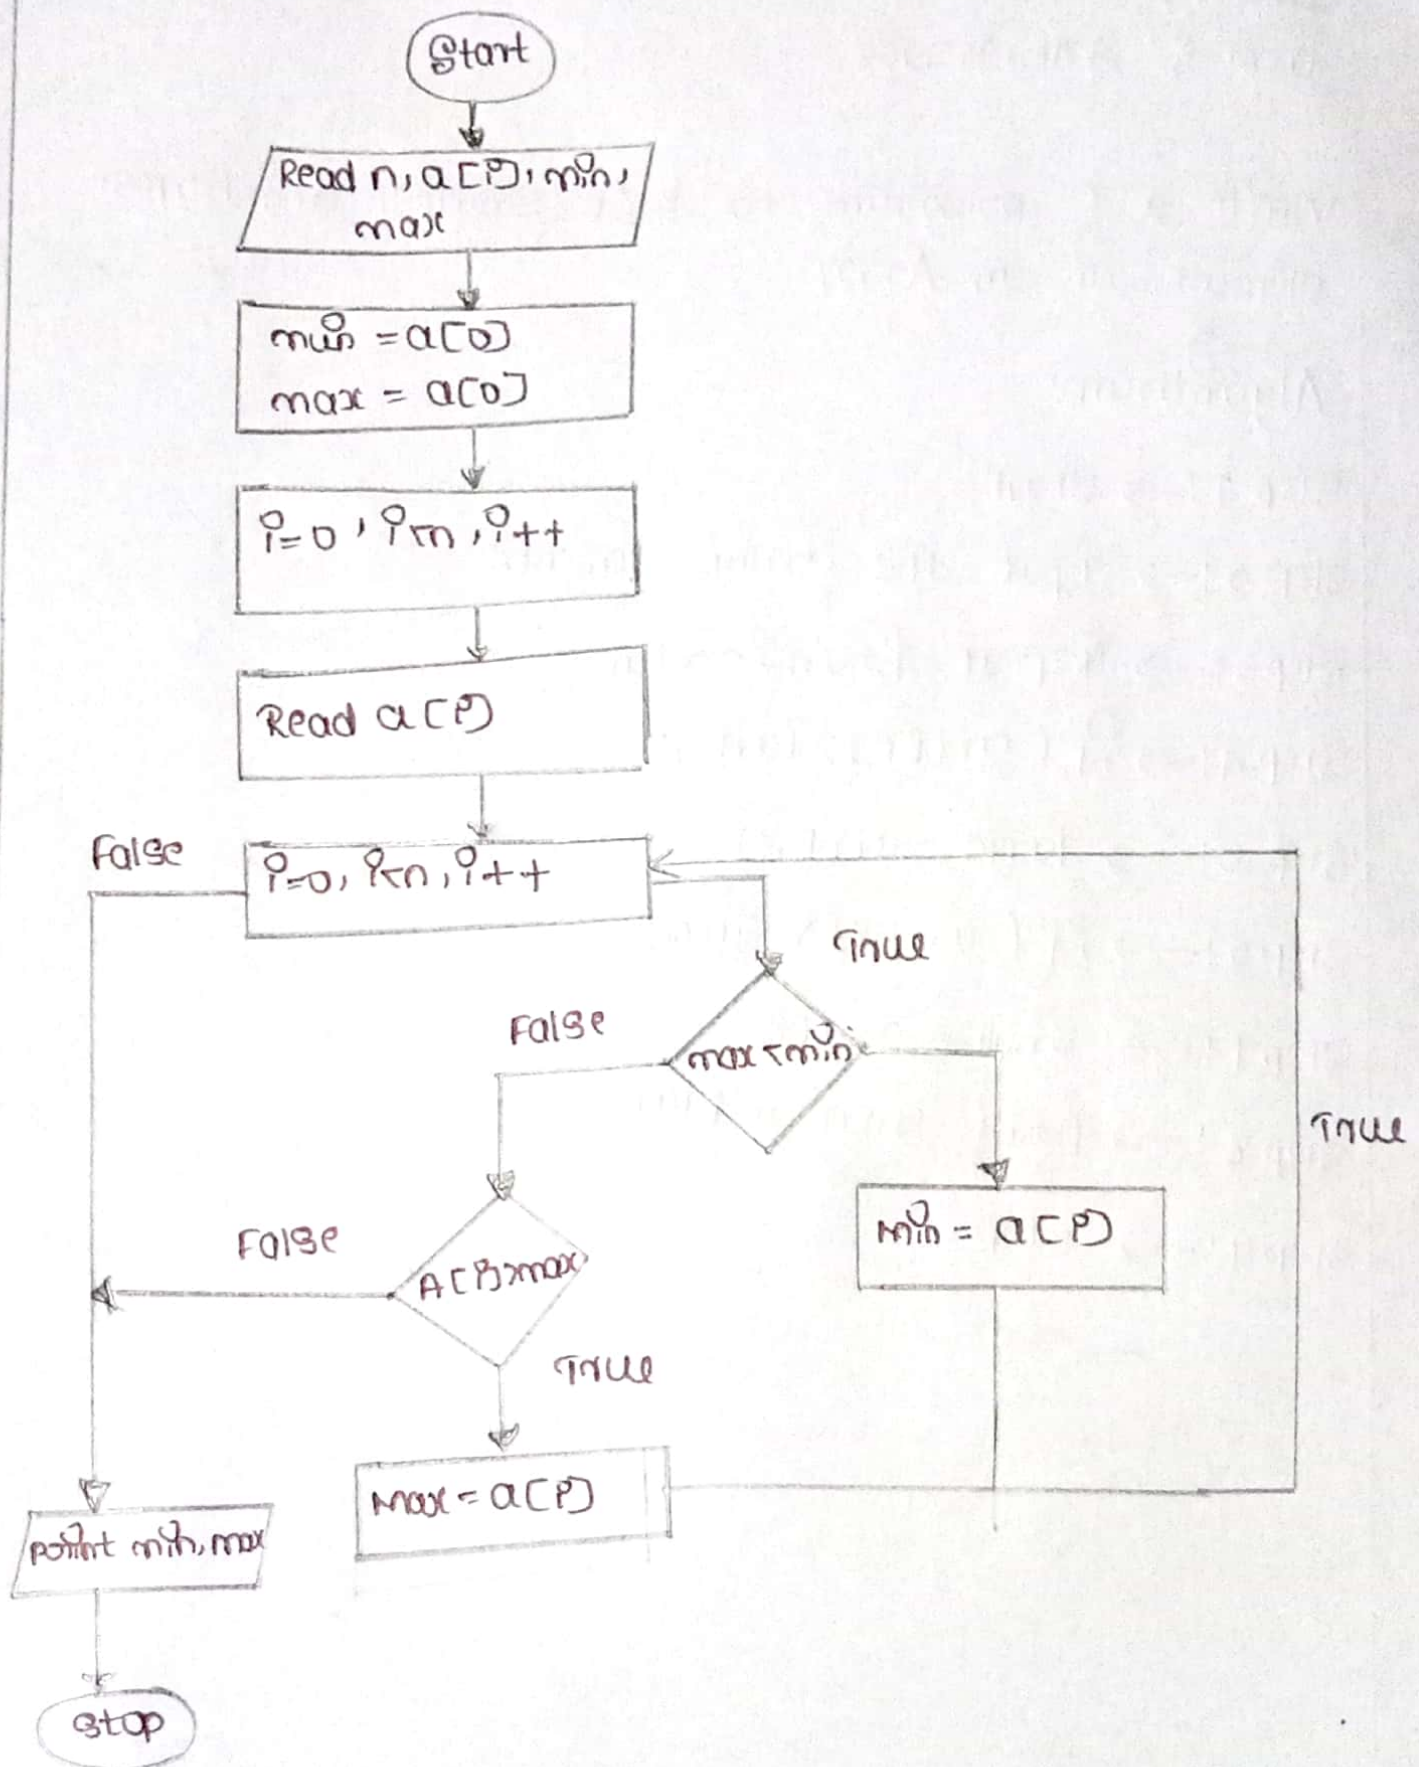 Start
Read n, a[i], min,
max
min = a[0]
max = a[0]
i=0, i<n, i++
Read a[i]
False
i=0, i<n, i++
True
False
max < min
True
min = a[i]
False
A[i]>max
True
Max = a[i]
print min, max
Stop